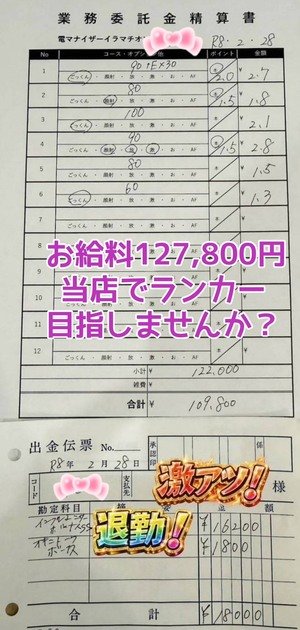 業務委託金精算書
電マナイザーイラマチオ
R8・2・28
コース・オプション・他 ポイント 金額
1 90+E×30 2.0 ¥2.7
ごっくん・顔射・放・激・お・AF
2 80 1.5 ¥1.8
ごっくん・顔射・放・激・お・AF
3 100 ¥2.1
ごっくん・顔射・放・激・お・AF
4 90 1.5 ¥2.8
ごっくん・顔射・放・激・お・AF
5 80 ¥1.5
ごっくん・顔射・放・激・お・AF
6 60 ¥1.3
ごっくん・顔射・放・激・お・AF
お給料127,800円
当店でランカー
目指しませんか?
12
ごっくん・顔射・放・激・お・AF
小計 ¥122,000
雑費 ¥
合計 ¥109,800
出金伝票 No.
承認印
係
R8年2月28日
コード
支払先
様
激アツ!
退勤!
勘定科目 摘 金額
ボーナス ¥16200
ボーナス ¥1800
合計 ¥18000